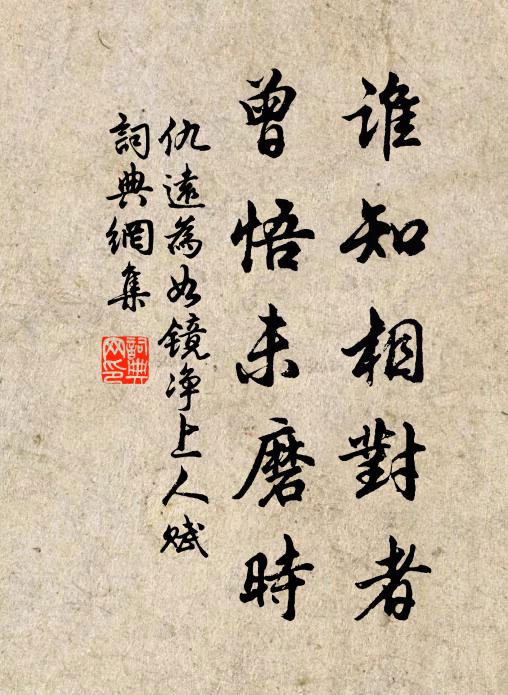 誰知相對者
曾悟未磨時
仇遠為如鏡净上人赋
詞典網集
詞典網印